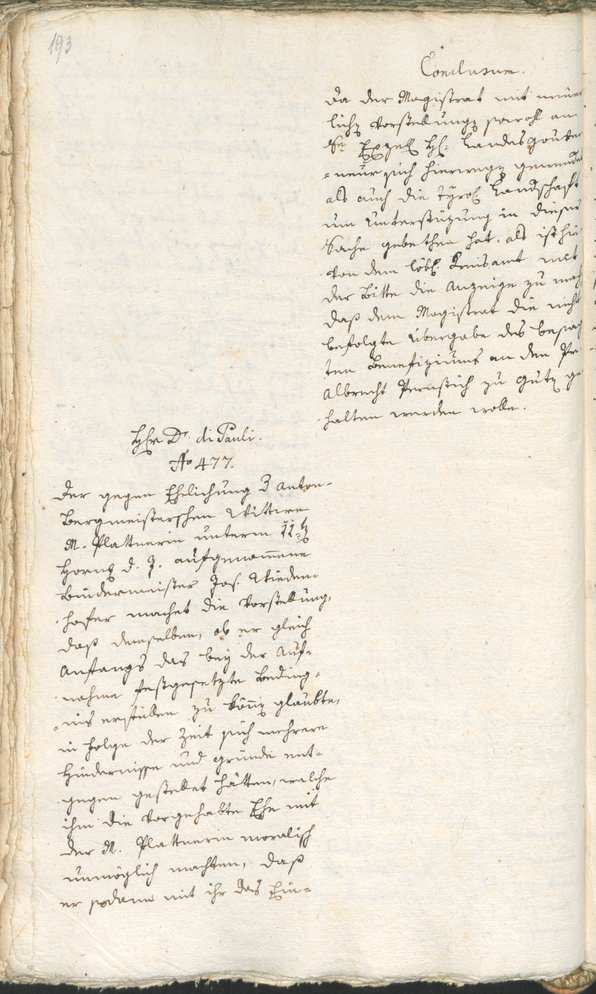 193
Conclusum.
da der Magistrat mit münd
lich Vorstellung sowohl an
Se Exzell H: Landesgouver
=neur sich hierweg gewendet
als auch die tyrol Landschaft
um Unterstüzung in dieser
Sache gebethen hat, als ist hie
von dem löbl. Kreisamt mit
der Bitte die Anzeige zu mach
daß dem Magistrat die nicht
befolgte Übergabe des besag
ten Benefiziums an den Pr
Albrecht zu gut ge
halten werden wolle.
Hr Dr. di Pauli.
No 477.
Der gegen Ehelichung 3 Anton
Bergmeisterschen Wittwe
M. Plattnerin unterm 11t
Hornung d. J. aufgenommene
Bindermeister Jos. Wieden-
hofer machet die Vorstellung,
daß demselben, ob er gleich
Anfangs das bey der Auf-
nahme festgesezte Beding-
=nis erfüllen zu können glaubte,
in Folge der Zeit sich mehrere
Hindernisse und Gründe ent-
gegen gestellet hätten, welche
ihm die Vorgehabte Ehe mit
der M. Plattnerin moralisch
unmöglich machten, daß
er sodann mit ihr das Ein=